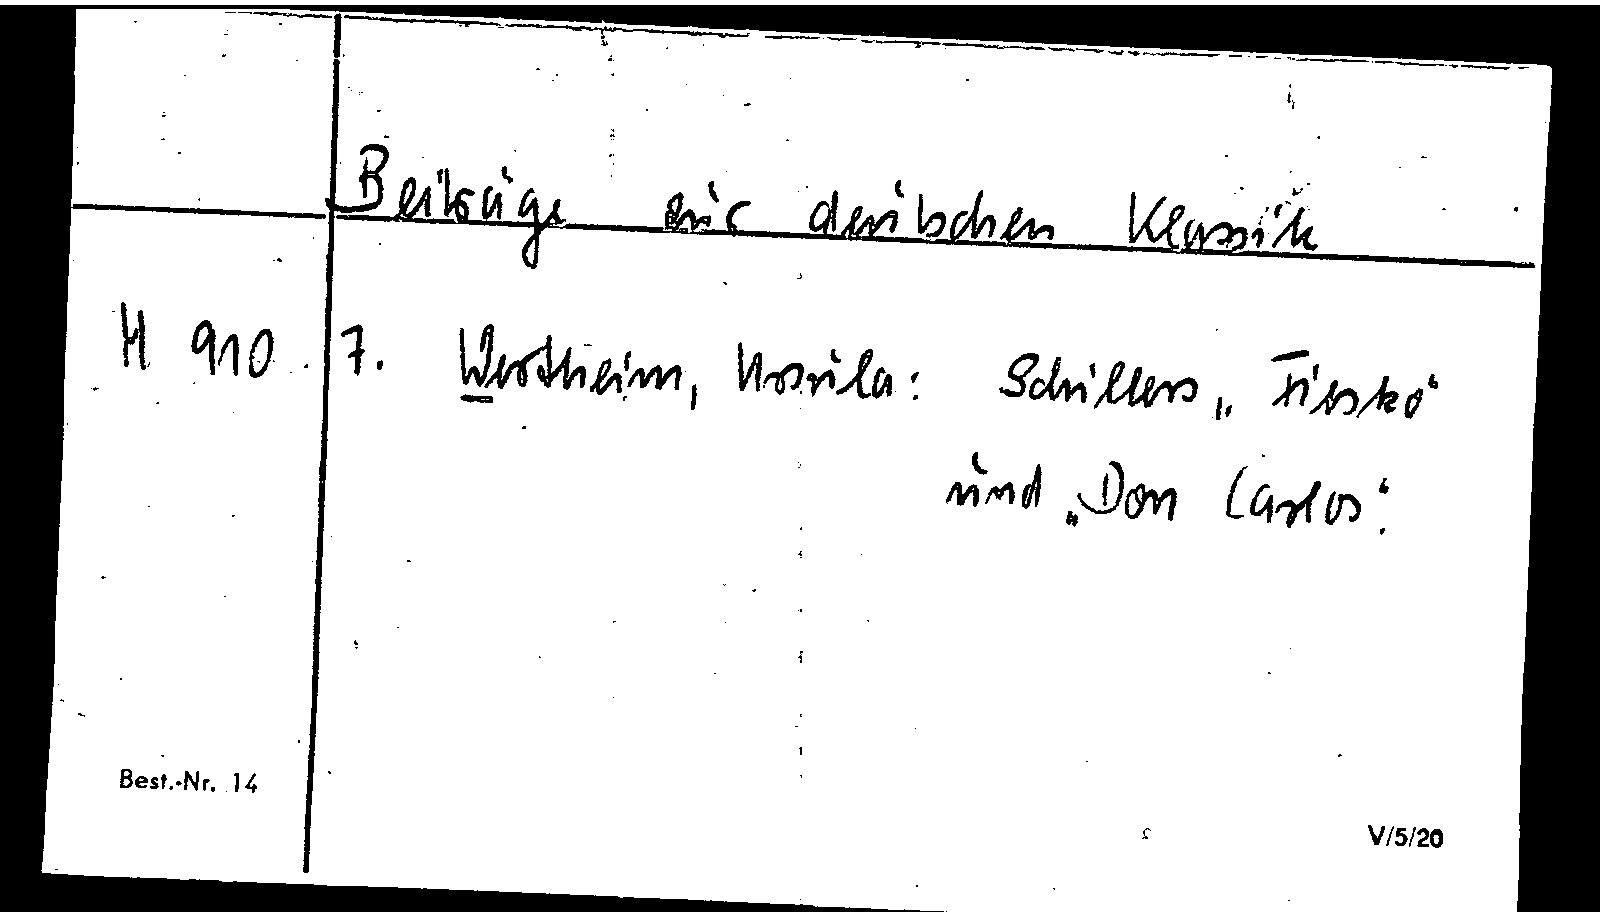 Beiträge zur deutschen Klassik
H 910 7. Wertheim, Ursula: Schillers „Fiesko“
und „Don Carlos“.
Best.-Nr. 14
V/5/20